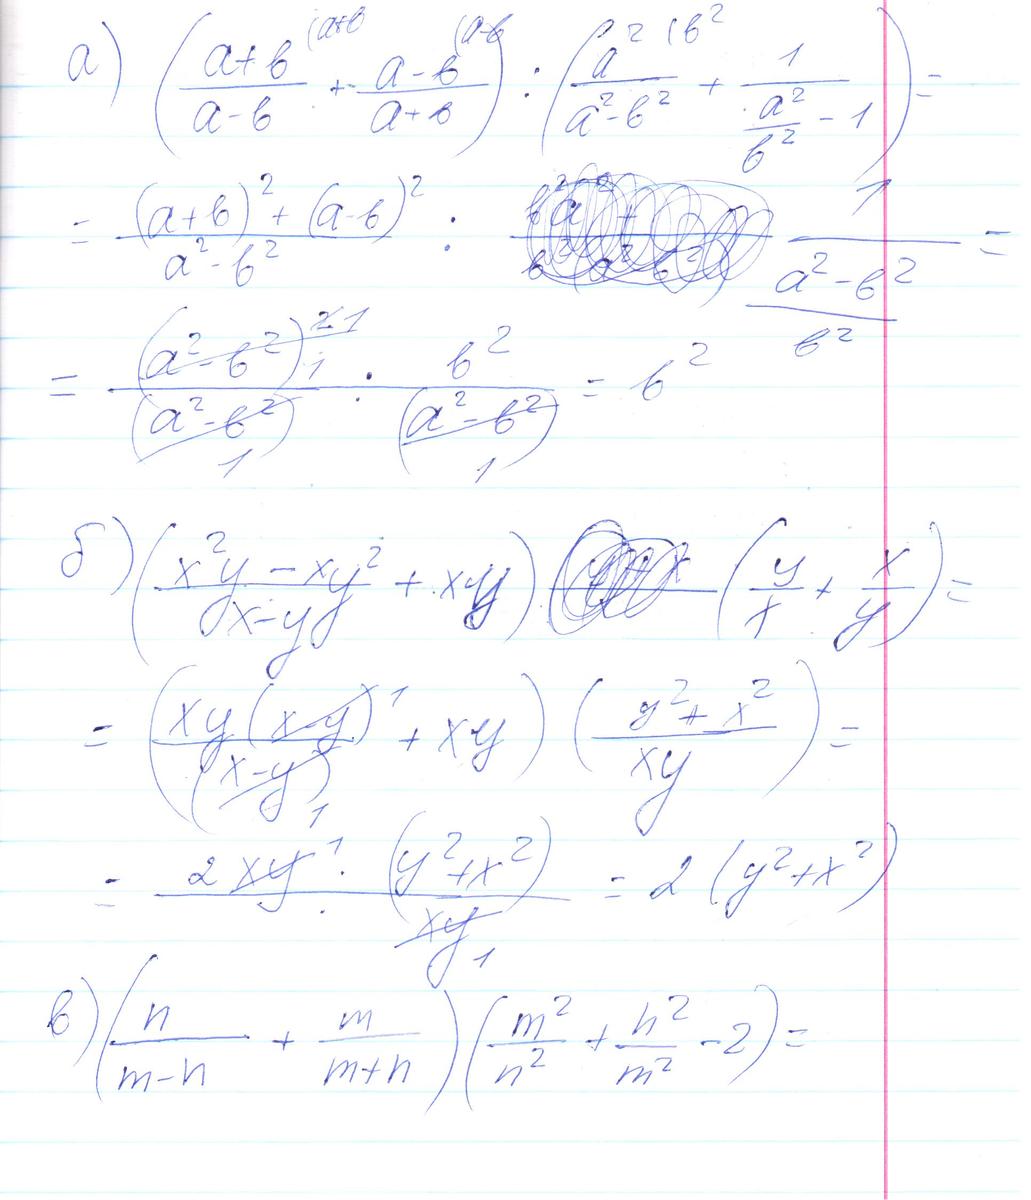 а) ((a+b)/(a-b) (a+b + (a-b)/(a+b) (a-b) : (a²/(a²-b²) (b² + 1/(a²/b² - 1)) =
= ((a+b)² + (a-b)²)/(a²-b²) : 1/((a²-b²)/b²) =
= (a²-b²)²¹/(a²-b²) : b²/(a²-b²) = b²
б) ((x²y - xy²)/(x-y) + xy) (y/x + x/y) =
= (xy(x-y)/(x-y) + xy) ((y²+x²)/xy) =
= 2xy · (y²+x²)/xy = 2(y²+x²)
в) (n/(m-n) + m/(m+n)) (m²/n² + n²/m² - 2) =